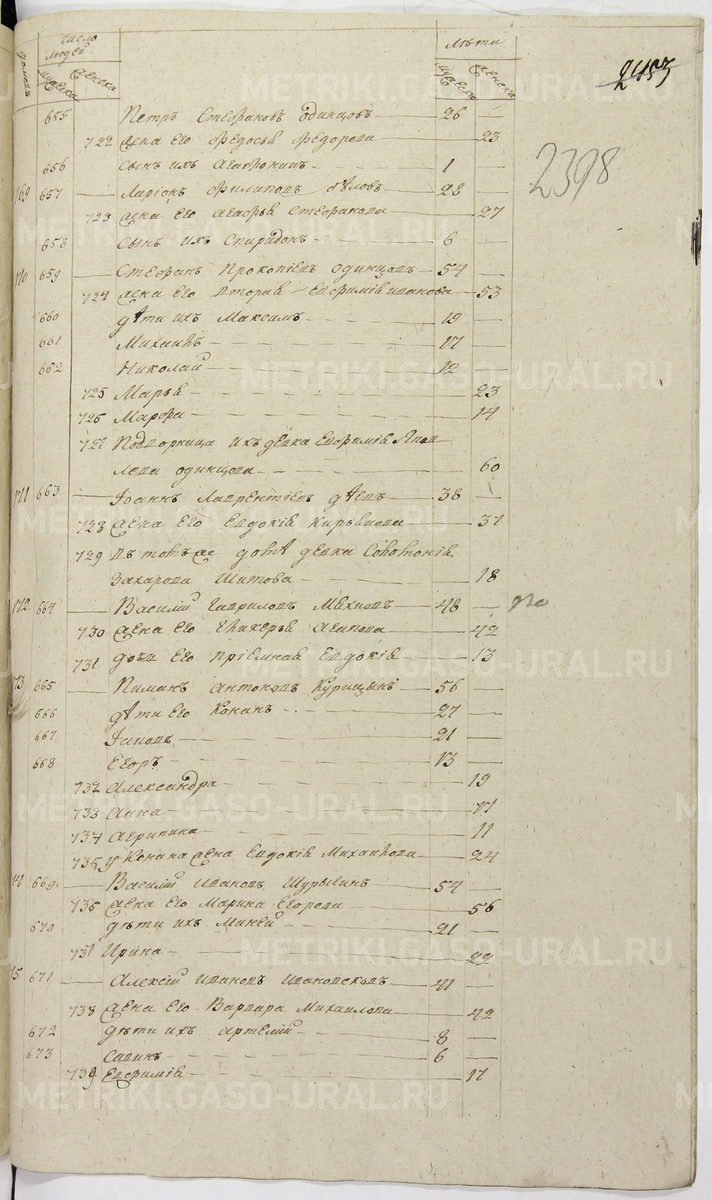 число людей лѣта
домовъ мужеска женска мужеск женска
2453
2398
655 Петръ Стефановъ Одинцовъ 26
722 жена его Федосья Федорова 23
656 сынъ ихъ Агафонникъ 1
169 657 Ларіонъ Филиповъ Бѣловъ 28
723 жена его Агафья Стефанова 27
658 сынъ ихъ Спиридонъ 6
170 659 Стефанъ Прокопіевъ Одинцовъ 54
724 жена его вторая Евфимія Иванова 53
660 дѣти ихъ Максимъ 19
661 Михаилъ 17
662 Николай 12
725 Марья 23
726 Марфа 14
727 Подворница ихъ девка Евфимія Яков
лева Одинцова 60
171 663 Іоаннъ Лаврентіевъ 38
728 жена его Евдокія Кирьянова 37
729 въ томъ же домѣ девка Соломонія
Захарова Шитова 18
172 664 Василий Гавриловъ Мѣхновъ 48
730 жена его Гликерья Агапова 42
731 дочь его пріемная Евдокія 13
73 665 Пиманъ Антоновъ Курицынъ 56
666 дѣти его Конанъ 27
667 Іаковъ 21
668 Егоръ 13
732 Александра 19
733 Анна 17
734 Агрипина 11
735 у Конана жена Евдокія Михаилова 24
669 Василий Ивановъ Шурыгинъ 54
736 жена его Марина Егорова 56
670 дѣти ихъ Миней 21
737 Ирина 22
671 Алексій Ивановъ Ивановсковъ 41
738 жена его Варвара Михаилова 42
672 дѣти ихъ Артемій 8
673 Савинъ 6
739 Евфимія 17
METRIKI.GASO-URAL.RU